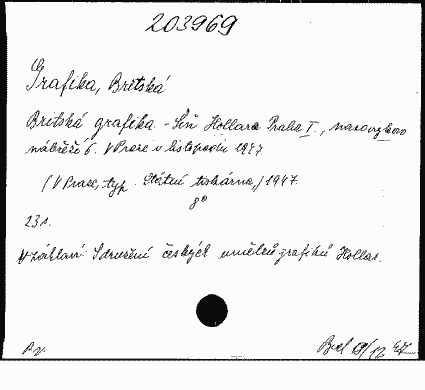 203969
Grafika, Britská
Britská grafika. - Síň Hollara Praha I., Masarykovo
nábřeží 6. V Praze v listopadu 1947.
(V Praze, typ. Státní tiskárna,) 1947.
8°
23 s.
V záhlaví: Sdružení českých umělců grafiků Hollar.
19/12 47